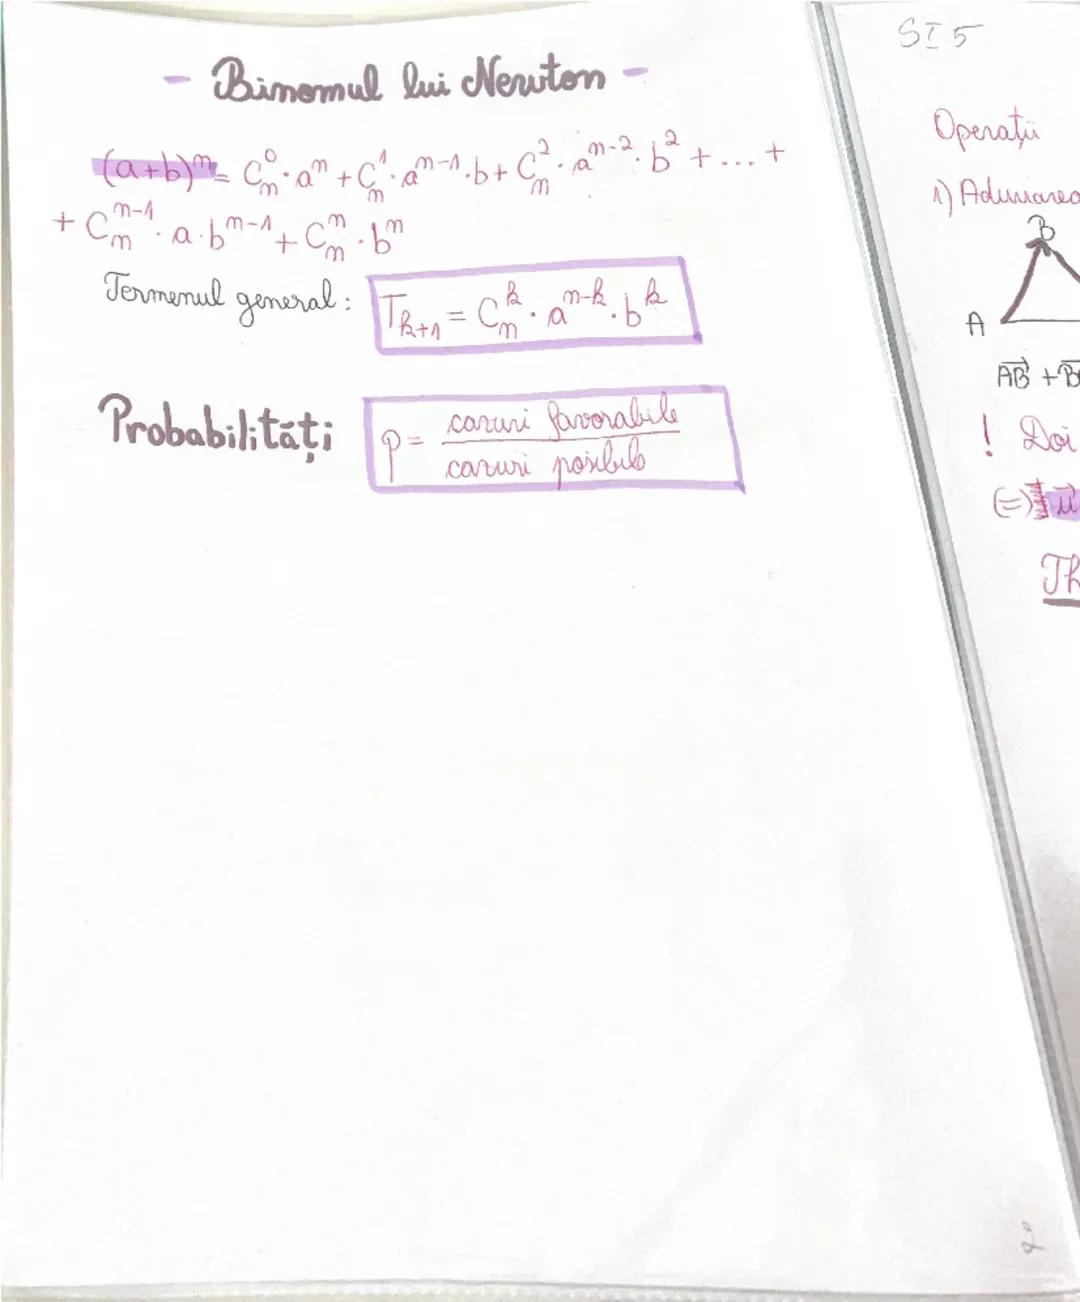 - Binomul lui Newton -
(a+b)ⁿ = Cₙ⁰ · aⁿ + Cₙ¹ · aⁿ⁻¹ · b + Cₙ² · aⁿ⁻² · b² + ... +
+ Cₙⁿ⁻¹ · a · bⁿ⁻¹ + Cₙⁿ · bⁿ
Termenul general: Tₖ₊₁ = Cₙᵏ · aⁿ⁻ᵏ · bᵏ
Probabilități p = cazuri favorabile
cazuri posibile
SI 5
Operații
1) Adunarea
B
A
AB +B
! Doi
(=) u
Th